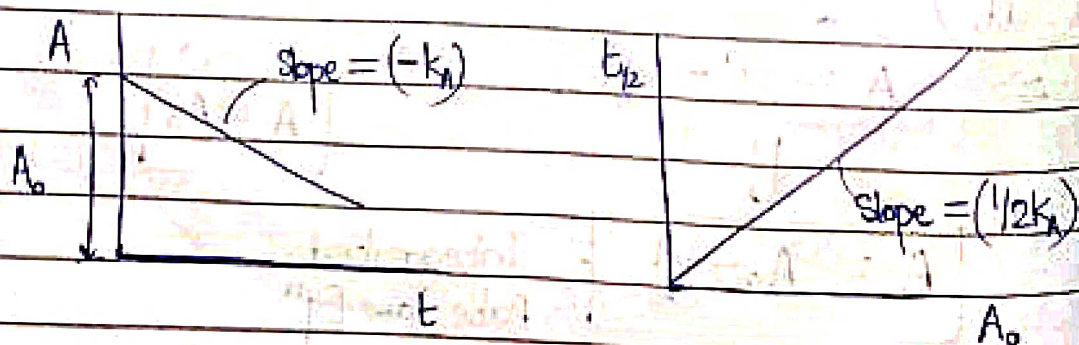 A
Slope = (-k_A)
A₀
t
t_{1/2}
Slope = (1/2k_A)
A₀